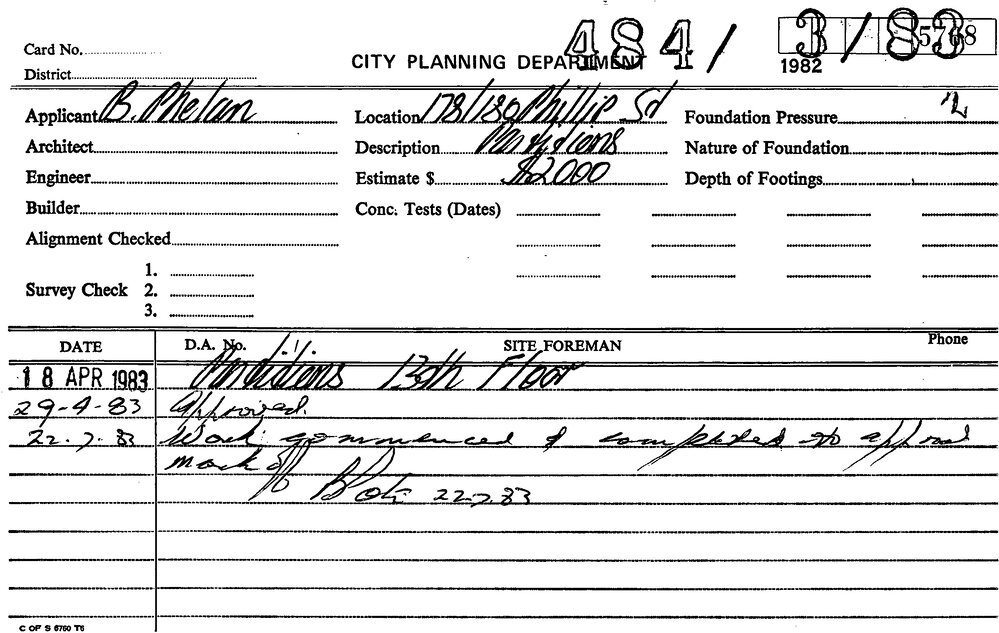 484/ 3/83
5768
1982
Card No.
CITY PLANNING DEPARTMENT
District
Applicant B. Phelan Location 178/180 Phillip St Foundation Pressure
Architect Description Partitions Nature of Foundation
Engineer Estimate $ $2000 Depth of Footings
Builder Conc. Tests (Dates)
Alignment Checked
1.
Survey Check 2.
3.
DATE D.A. No. SITE FOREMAN Phone
18 APR 1983 Partitions 13th Floor
29-4-83 Approved.
22.7.83 Work commenced & completed to approval
mark off
22.7.83
C OF S 6760 T6